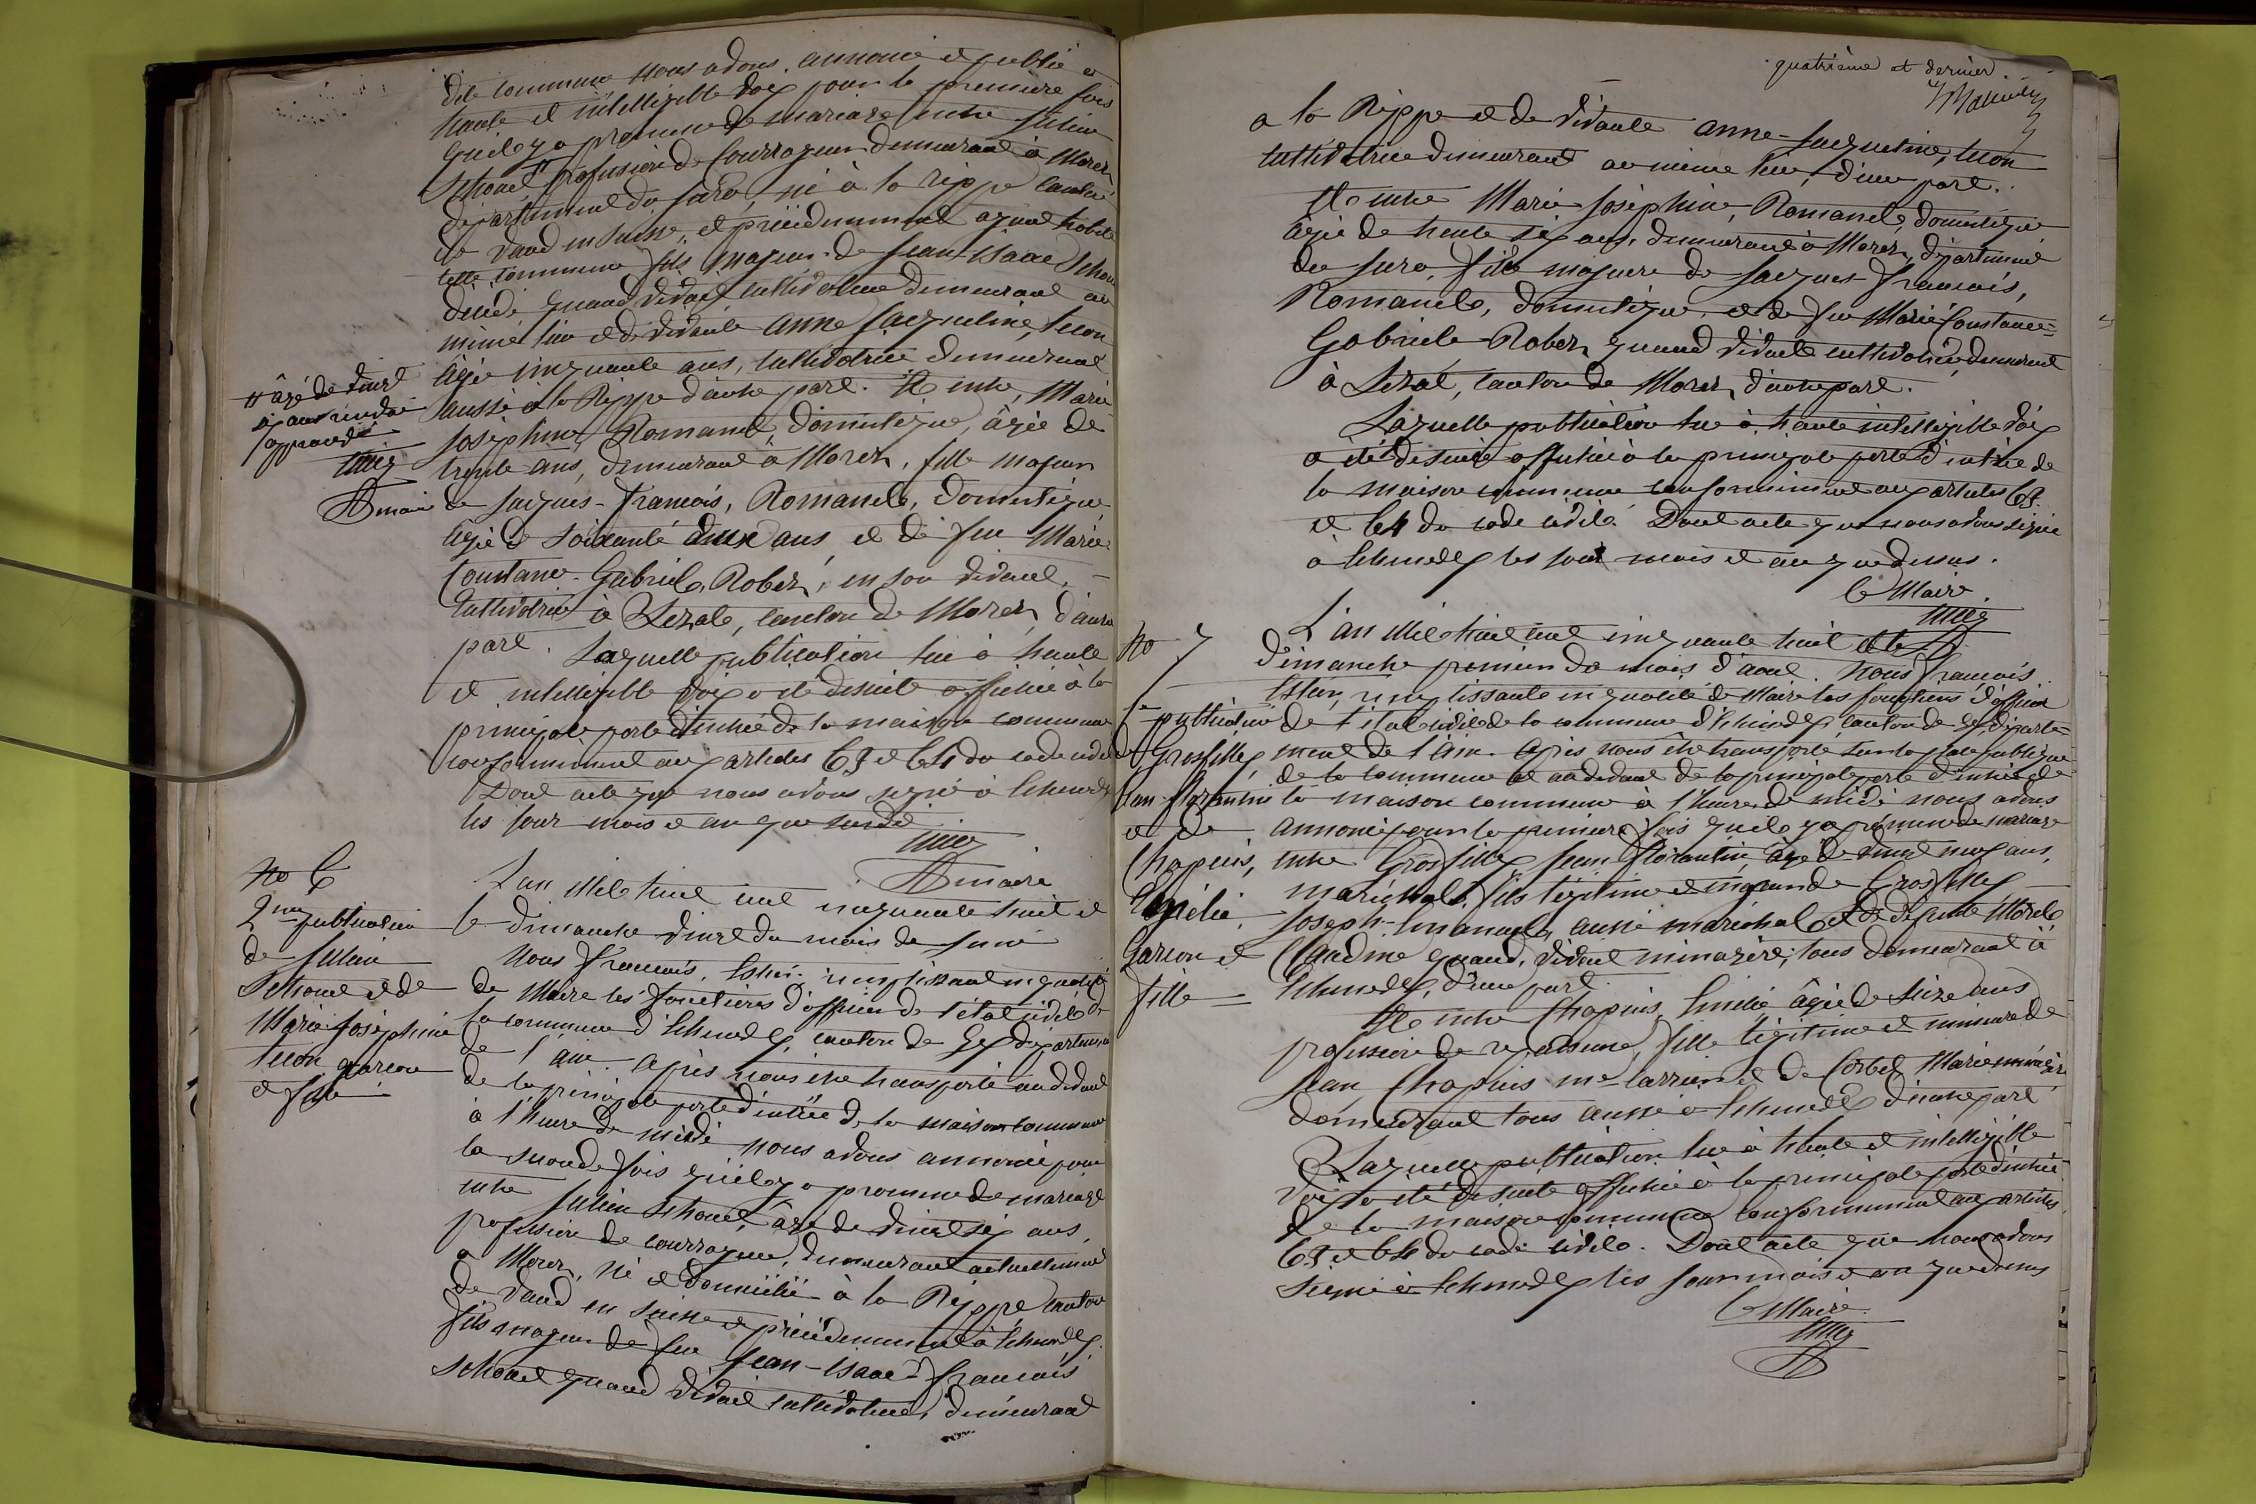 dite commune nous avons annoncé et publié a
haute et intelligible voix pour la premiere fois
quil y a promesse de mariage entre Julien
Schouet # profession de Courrayeur demeurant à Morez
département du Jura, né à la rippe canton
de Vaud en Suisse, et précédemment ayant habité
cette commune fils majeur de Jean-Isaac Schouet
décédé quand vivait cultivateur demeurant au
même lieu et de vivante Anne Jacqueline, Tecon
âgée cinquante ans, cultivatrice demeurant
aussi à la Rippe d'autre part. Et entre, Marie
Joséphine, Romanet, domestique, âgée de
trente ans, demeurant à Morez, fille majeure
de Jacques-François, Romanet, domestique
âgé de soixante deux ans, et de feu Marie
Constance-Gabriel, Robez, en son vivant,
cultivatrice à Lezat, canton de Morez, d'autre
part. Laquelle publication lue à haute
et intelligible voix a été desuite affichée à la
principale porte d'entrée de la maison commune
conformément aux articles 63 et 64 du code civil
Dont acte que nous avons signé à Echenevex
les jour mois et an que susdit
maire
# âgé de vingt
six ans renvoi
approuvé
maire
No 6
2me publication
de Julien
Schouet et de
Marie Joséphine
Tecon garcon
et fille
L'an mil huit cent cinquante huit et
le dimanche vingt du mois de Juin
Nous François, remplissant en qualité
de Maire les fonctions d'officier de l'état civil de
la commune d'Echenevex, canton de Gex département
de l'ain. Après nous être transporté au devant
de la principale porte d'entrée de la maison commune
à l'heure de midi nous avons annoncé pour
la seconde fois qu'il y a promesse de mariage
entre Julien Schouet, âgé de vingt six ans,
profession de courrayeur, demeurant actuellement
a Morez, né et domicilié à la Rippe canton
de Vaud en Suisse et précédemment à Echenevex,
fils majeur de feu Jean-Isaac-François
Schouet quand vivait cultivateur, demeurant
quatrième et dernier.
a la Rippe et de vivante Anne-Jacqueline, Tecon
cultivatrice demeurant au même lieu, d'une part.
Et entre Marie Joséphine, Romanet, domestique
âgée de trente six ans, demeurant à Morez, département
du Jura, fille majeure de Jacques-François,
Romanet, domestique, et de feu Marie Constance=
Gabriel-Robez, quand vivait cultivatrice, demeurant
à Lezat, canton de Morez, d'autre part.
Laquelle publication lue à haute intelligible voix
a été desuite affichée à la principale porte d'entrée de
la maison commune conformément aux articles 63
et 64 du code civil. Dont acte que nous avons signé
à Echenevex les jour mois et an que dessus.
le Maire
No 7
1re publication
de Grosfilley
Jean-florentin
et de
Chapuis,
Emélie.
Garcon et
fille
L'an mil huit cent cinquante huit et le
dimanche premier du mois d'aout. Nous François
remplissant en qualité de Maire les fonctions d'officier
de l'état civil de la commune d'Echenevex, canton de Gex, départe=
ment de l'ain. Après nous être transporté sur la place publique
de la commune et au devant de la principale porte d'entrée de
la maison commune à l'heure de midi nous avons
annoncé pour la premiere fois qu'il y a promesse de mariage
entre Grosfilley Jean Florentin âgé de vingt neuf ans,
maréchal, fils légitime et majeur de Grosfilley
Joseph-Emanuel, aussi maréchal et de défunte Morel
Claudine quand, vivait ménagère, tous demeurant à
Echenevex, d'une part.
Et entre Chapuis, Emélie âgée de seize ans
profession de repasseuse, fille légitime et mineure de
Jean Chapuis me-carrier et de Corbet Marie ménagère
demeurant tous aussi à Echenevex d'autre part
Laquelle publication lue à haute et intelligible
voix a été de suite affichée à la principale porte d'entrée
de la maison commune conformément aux articles
63 et 64 du code civil. Dont acte que nous avons
signé à Echenevex les jour mois et an que dessus
Le Maire